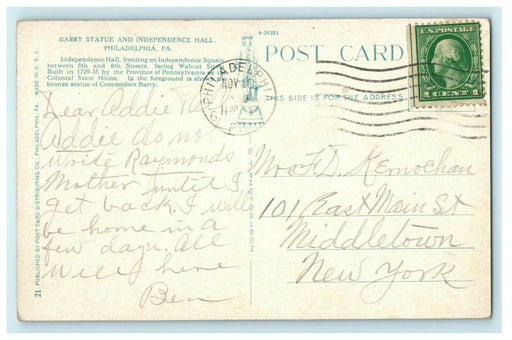 BARRY STATUE AND INDEPENDENCE HALL,
PHILADELPHIA, PA.
Independence Hall, fronting on Independence Square
between 5th and 6th Streets, facing Walnut St
Built in 1729-35 by the Province of Pennsylvania
Colonial State House. In the foreground is
bronze statue of Commodore Barry.
A-34323
POST CARD
THIS SIDE IS FOR THE ADDRESS
PHILADELPHIA
NOV
PA.
U.S. POSTAGE
1 CENT 1
MADE IN U. S. A.
21 PUBLISHED BY POST CARD DISTRIBUTING CO., PHILADELPHIA, PA.
Dear Addie
Addie do not
write Raymonds
Mother until I
get back I will
be home in a
few days. All
Well here
Ben
Mrs F. D. Kernochan
101 East Main St
Middletown
New York